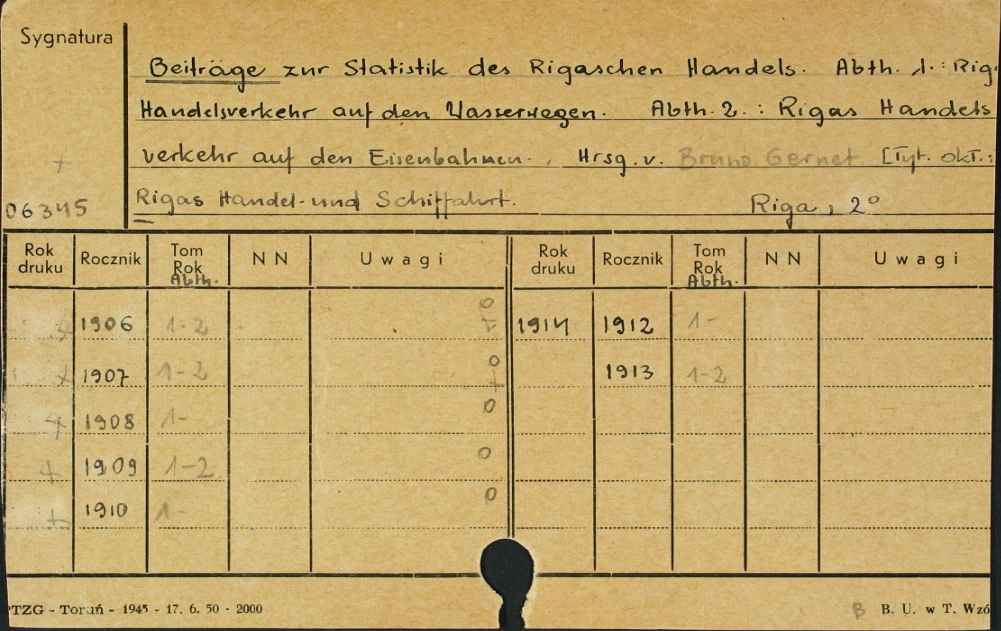 Sygnatura
Beiträge zur Statistik des Rigaschen Handels. Abth. 1.: Rig
Handelsverkehr auf den Wasserwegen. Abth. 2. : Rigas Handels
verkehr auf den Eisenbahnen. Hrsg. v. Bruno Gernet [Tyt. okł.:
06345 Rigas Handel- und Schiffahrt. Riga, 2°
Rok druku Rocznik Tom Rok Abth. NN Uwagi Rok druku Rocznik Tom Rok Abth. NN Uwagi
+ 1906 1-2 0 + 1914 1912 1-
+ 1907 1-2 0 + 1913 1-2
+ 1908 1- 0
+ 1909 1-2 0
+ 1910 1- 0
PTZG - Toruń - 1945 - 17. 6. 50 - 2000 B B. U. w T. Wzó